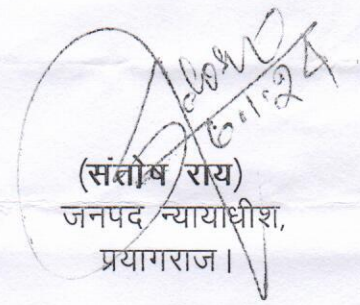 6.1.24
(संतोष राय)
जनपद न्यायाधीश,
प्रयागराज।